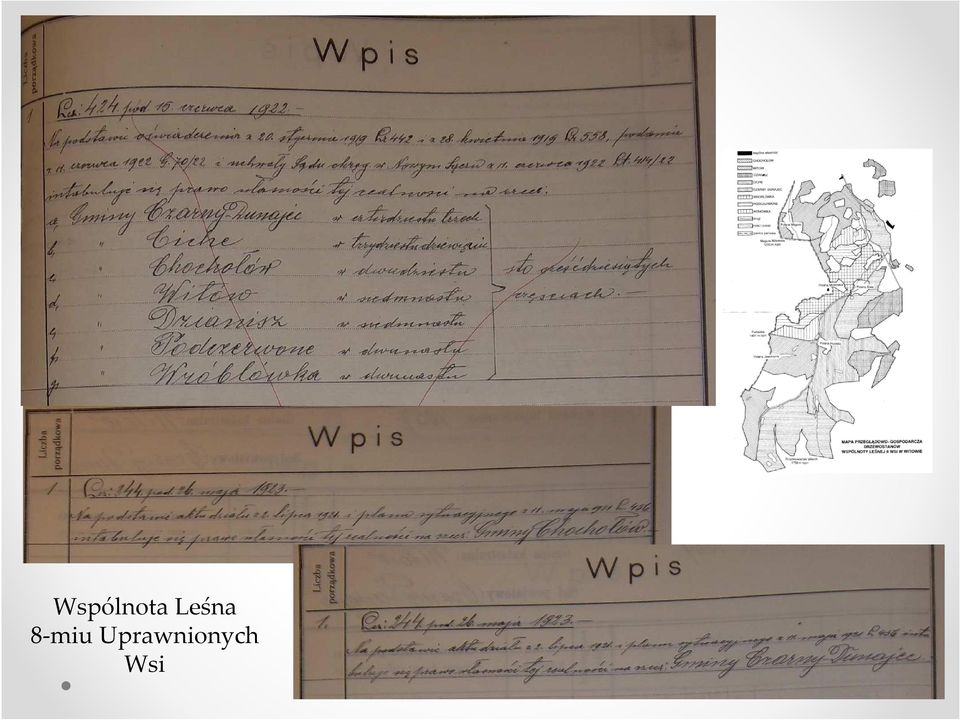 Liczba porządkowa
Wpis
1 Lcz: 424 pod. 15. czerwca 1922.-
Na podstawie oświadczenia z 20. stycznia 1919 Lz 442 i z 28. kwietnia 1919 Lz 558, podania
z 11. czerwca 1922 G. 70/22 i uchwały Sądu okręg w Nowym Sączu z 11. czerwca 1922
intabuluje się prawo własności tej realności na rzecz:
a, Gminy Czarny-Dunajec w czterdziestu trzech
b, " Ciche w trzydziestu dziewięciu
c, " Chochołów w dwudziestu sto sześćdziesiątych
d, " Witów w siedmnastu częściach.-
e, " Dzianisz w siedmnastu
f, " Podczerwone w dwunastu
g, " Wróblówka w dwunastu
CHOCHOŁÓW
WITÓW
CICHE
WRÓBLÓWKA
PODCZERWONE
MAPA PRZEGLĄDOWO- GOSPODARCZA
DRZEWOSTANÓW
WSPÓLNOTY LEŚNEJ 8 WSI W WITOWIE
Liczba porządkowa
Wpis
1. Lcz: 244. pod. 26. maja 1923.-
Na podstawie aktu działu z 2. lipca 1921. i planu sytuacyjnego z 11. maja 1921 L. 456
intabuluje się prawo własności tej realności na rzecz: Gminy Chochołów.-
Liczba porządkowa
Wpis
1. Lcz: 244. pod. 26. maja 1923.-
Na podstawie aktu działu z 2. lipca 1921. i planu sytuacyjnego z 11. maja 1921 L. 456 inta
buluje się prawo własności tej realności na rzecz: Gminy Czarny Dunajec.
Wspólnota Leśna
8-miu Uprawnionych
Wsi